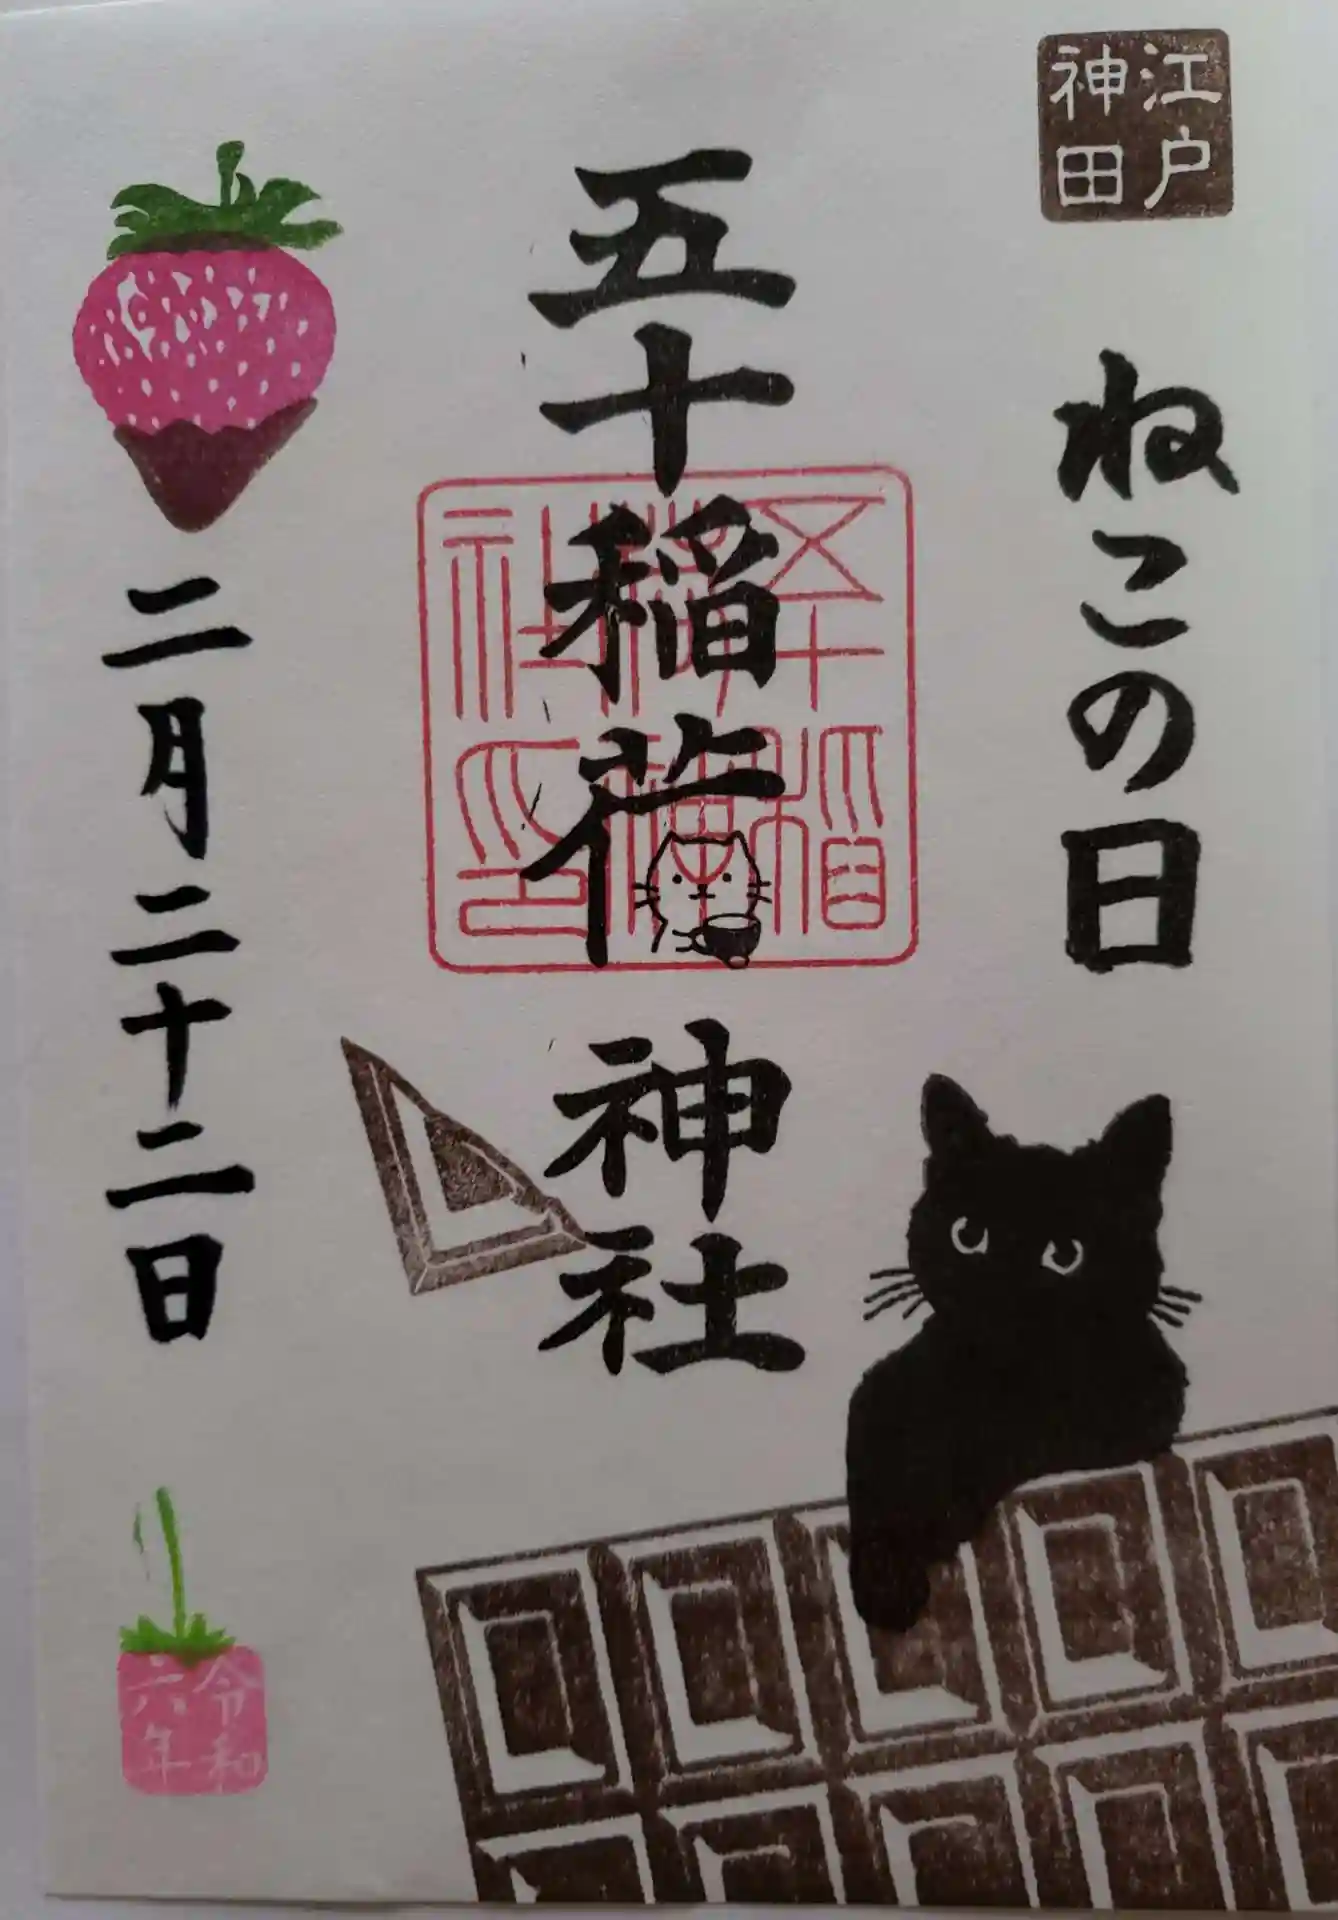 江戸
神田
ねこの日
五十稲荷神社
五十稲
荷神
社印
二月二十二日
令和
六年